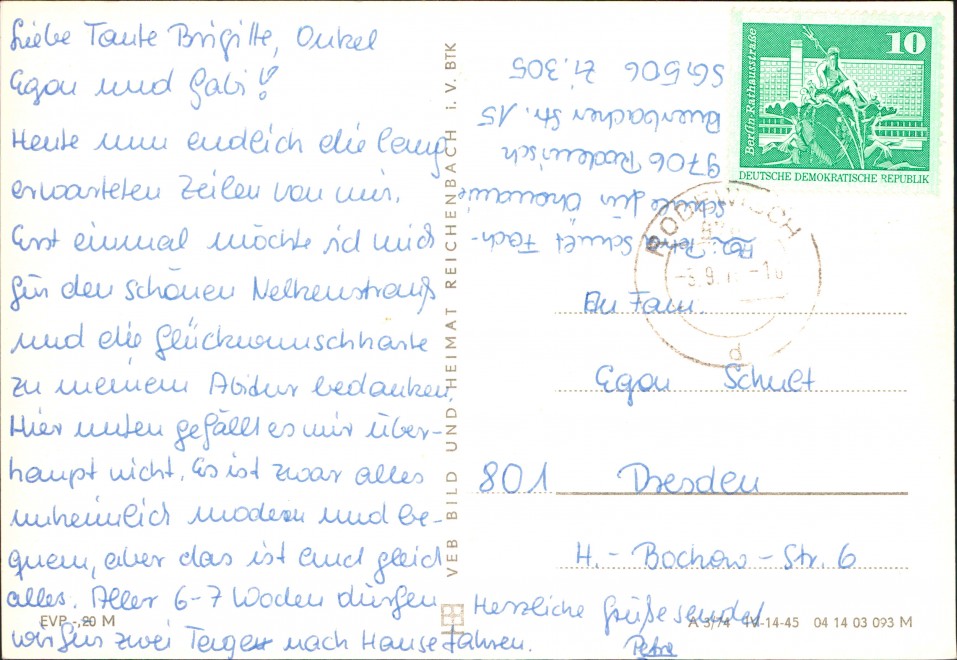 Liebe Tante Brigitte, Onkel
Egon und Gabi!
Heute nun endlich die lang
erwarteten Zeilen von mir.
Erst einmal möchte ich mich
für den schönen Nelkenstrauß
und die Glückwunschkarte
zu meinem Abitur bedanken.
Hier unten gefällt es mir über-
haupt nicht. Es ist zwar alles
unheimlich modern und be-
quem, aber das ist auch gleich
alles. Aller 6-7 Wochen dürfen
wir für zwei Tage nach Hause fahren.
Herzliche Grüße sendet
Petra
VEB BILD UND HEIMAT REICHENBACH i. V. BTK
Petra Schult Fach-
schule für
9706 Rodewisch
Auerbacher Str. 15
SG 506 Zi. 305
10
Berlin-Rathausstraße
DEUTSCHE DEMOKRATISCHE REPUBLIK
RODEWISCH
d
Fam.
Egon Schult
801 Dresden
H.-Bochow-Str. 6
EVP -,20 M
A 3/74 IV-14-45 04 14 03 093 M